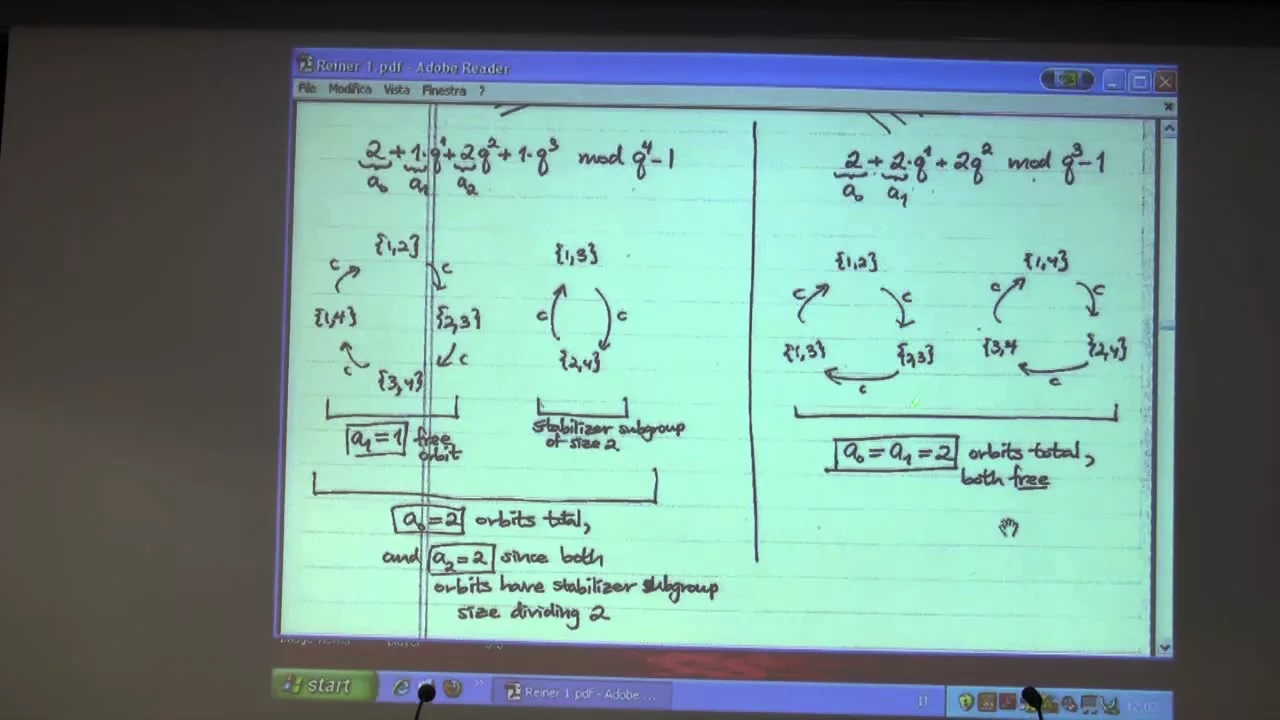 Reiner 1.pdf - Adobe Reader
File Modifica Vista Finestra ?
2 + 1·q¹ + 2q² + 1·q³ mod q⁴-1
a₀ a₁ a₂
{1,2}
c c
{1,4} {2,3}
c c
{3,4}
a₁=1 free
orbit
{1,3}
c c
{2,4}
stabilizer subgroup
of size 2
a₀=2 orbits total,
and a₂=2 since both
orbits have stabilizer subgroup
size dividing 2
2 + 2·q¹ + 2q² mod q³-1
a₀ a₁
{1,2} {1,4}
c c c c
{1,3} {2,3} {3,4 {2,4}
c c
a₀=a₁=2 orbits total,
both free
start
Reiner 1.pdf - Adobe ...
IT